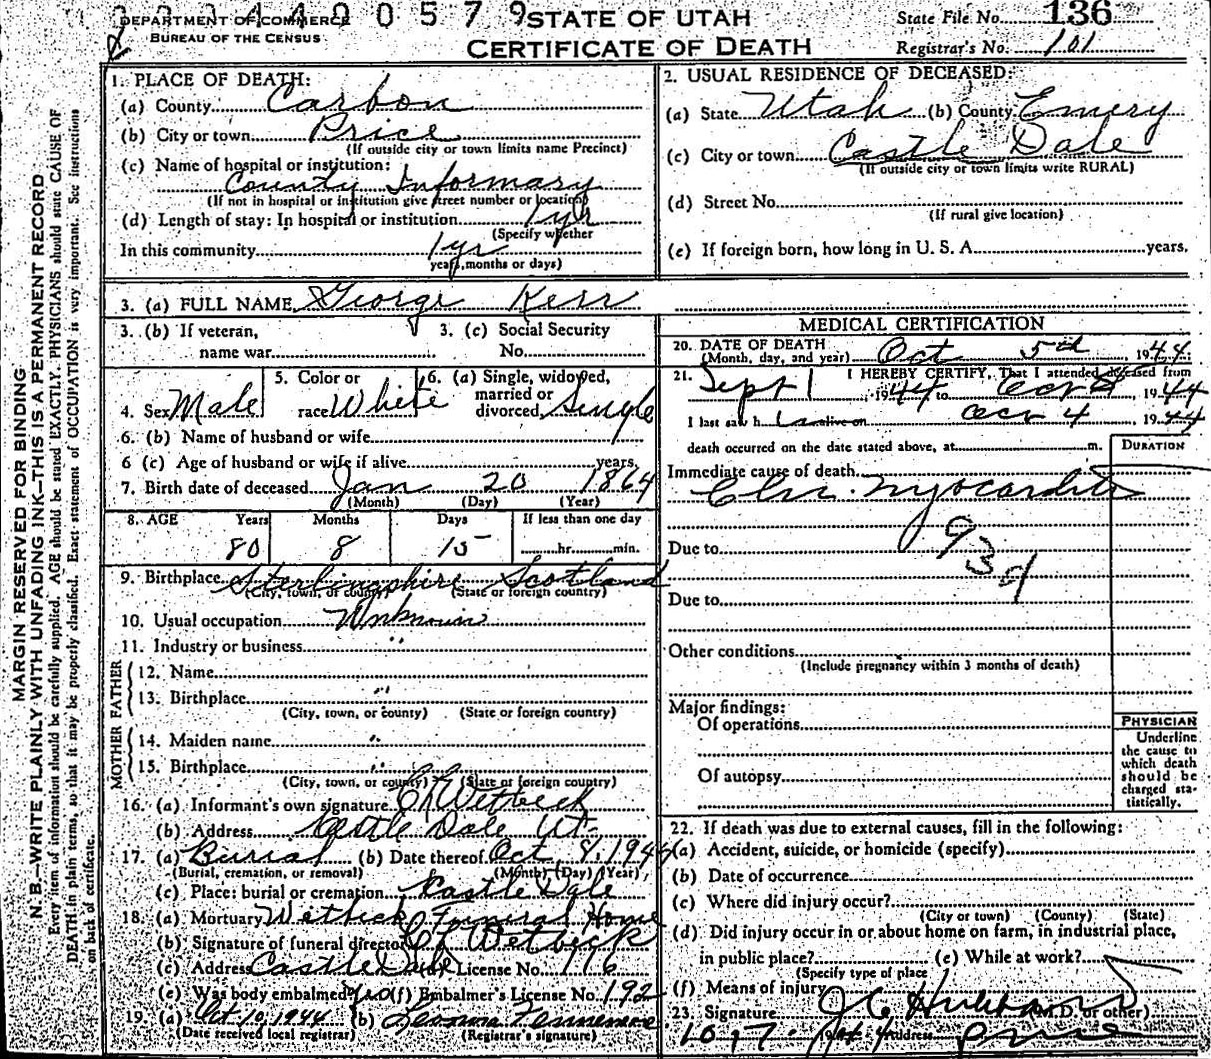 22 3 4 4 0 0 5 7 9
DEPARTMENT OF COMMERCE
BUREAU OF THE CENSUS
STATE OF UTAH
CERTIFICATE OF DEATH
State File No. 136
Registrar's No. 101
MARGIN RESERVED FOR BINDING
N. B.—WRITE PLAINLY WITH UNFADING INK—THIS IS A PERMANENT RECORD
Every item of information should be carefully supplied. AGE should be stated EXACTLY. PHYSICIANS should state CAUSE OF
DEATH in plain terms, so that it may be properly classified. Exact statement of OCCUPATION is very important. See instructions
on back of certificate.
1. PLACE OF DEATH:
(a) County Carbon
(b) City or town Price
(If outside city or town limits name Precinct)
(c) Name of hospital or institution:
County Informary
(If not in hospital or institution give street number or location)
(d) Length of stay: In hospital or institution 1 yr
(Specify whether
In this community 1 yr
years, months or days)
2. USUAL RESIDENCE OF DECEASED:
(a) State Utah (b) County Emery
(c) City or town Castle Dale
(If outside city or town limits write RURAL)
(d) Street No.
(If rural give location)
(e) If foreign born, how long in U. S. A. years.
3. (a) FULL NAME George Kerr
3. (b) If veteran,
name war
3. (c) Social Security
No.
4. Sex Male
5. Color or
race White
6. (a) Single, widowed,
married or
divorced, Single
6. (b) Name of husband or wife
6 (c) Age of husband or wife if alive years
7. Birth date of deceased Jan 20 1864
(Month) (Day) (Year)
8. AGE Years Months Days If less than one day
80 8 15 hr. min.
9. Birthplace Sterlingshire Scotland
(City, town, or county) (State or foreign country)
10. Usual occupation Unknown
11. Industry or business "
FATHER
12. Name
13. Birthplace "
(City, town, or county) (State or foreign country)
MOTHER
14. Maiden name "
15. Birthplace "
(City, town, or county) (State or foreign country)
16. (a) Informant's own signature
(b) Address Castle Dale Ut.
17. (a) Burial (b) Date thereof Oct 8, 1944
(Burial, cremation, or removal) (Month) (Day) (Year)
(c) Place: burial or cremation Castle Dale
18. (a) Mortuary Funeral Home
(b) Signature of funeral director
(c) Address Castle Dale (d) License No. 176
(e) Was body embalmed? yes (f) Embalmer's License No. 192
19. (a) Oct 10, 1944 (b) Leonora Fennemore
(Date received local registrar) (Registrar's signature)
MEDICAL CERTIFICATION
20. DATE OF DEATH
(Month, day, and year) Oct 5th, 1944.
21. I HEREBY CERTIFY, That I attended deceased from
Sept 1, 1944 to Oct, 1944
I last saw h alive on Oct 4 1944
death occurred on the date stated above, at m.
DURATION
Immediate cause of death
Chr. Myocarditis
93d
Due to
Due to
Other conditions
(Include pregnancy within 3 months of death)
Major findings:
Of operations
Of autopsy
PHYSICIAN
Underline
the cause to
which death
should be
charged sta-
tistically.
22. If death was due to external causes, fill in the following:
(a) Accident, suicide, or homicide (specify)
(b) Date of occurrence
(c) Where did injury occur?
(City or town) (County) (State)
(d) Did injury occur in or about home on farm, in industrial place,
in public place? (e) While at work?
(Specify type of place
(f) Means of injury
23. Signature J C Hubbard (M.D. or other)
10-7- Address Price